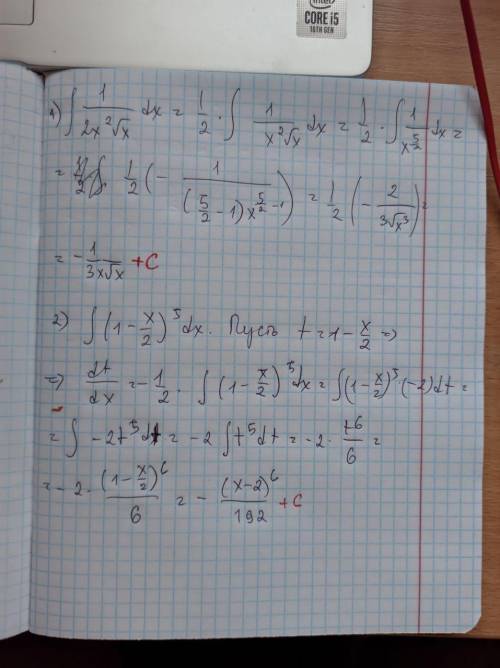 intel
CORE i5
10TH GEN
1) ∫ 1/(2x²√x) dx = 1/2 · ∫ 1/(x²√x) dx = 1/2 · ∫ 1/x^(5/2) dx =
= 1/2 (- 1/((5/2 - 1) x^(5/2 - 1))) = 1/2 (- 2/(3√x³)) =
= - 1/(3x√x) + C
2) ∫ (1 - x/2)⁵ dx. Пусть t = 1 - x/2 =>
=> dt/dx = - 1/2. ∫ (1 - x/2)⁵ dx = ∫ (1 - x/2)⁵ · (-2) dt =
= ∫ -2t⁵ dt = -2 ∫ t⁵ dt = -2 · t⁶/6 =
= -2 · (1 - x/2)⁶/6 = - (x-2)⁶/192 + C